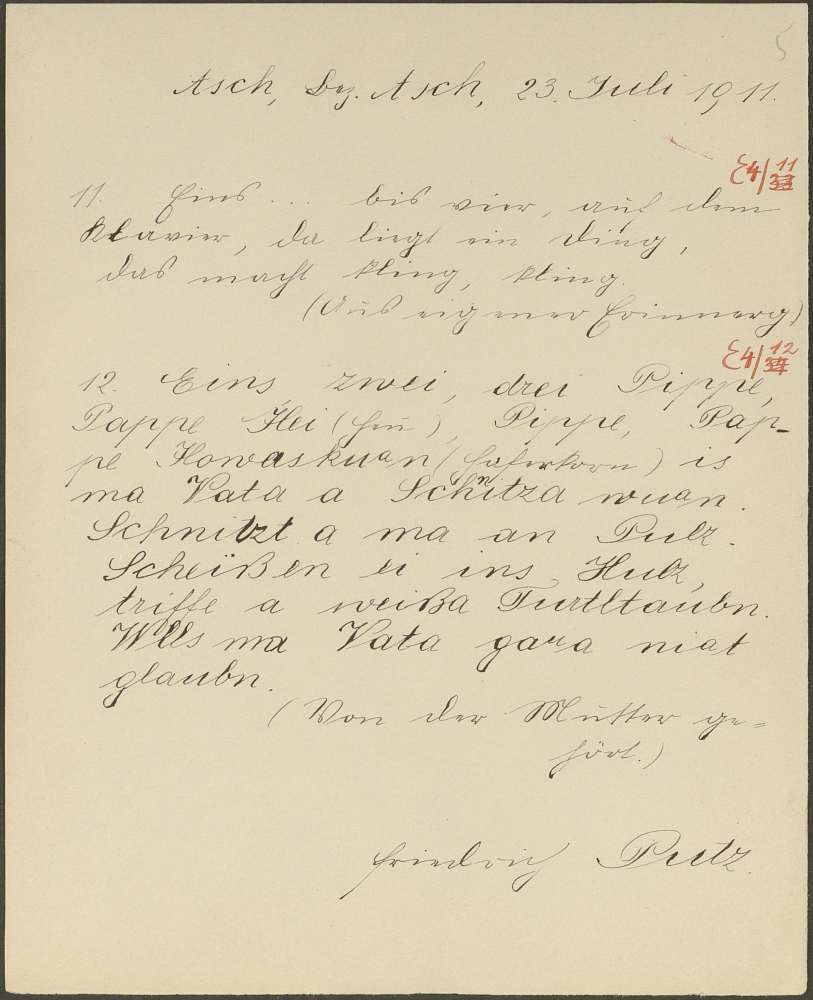 5
Asch, Bez. Asch, 23. Juli 1911.
E4/11 33
11. Eins... bis vier, auf dem
Klavier, da liegt ein Ding,
das macht kling, kling.
(Aus eigener Erinnerg)
E4/12 34
12. Eins zwei, drei Pippe,
Pappe Hei (Heu), Pippe, Pap-
pe Howaskuan (Haferkorn) is
ma Vata a Schnitza wuan.
Schnitzt a ma an Pulz.
Scheißen ei ins Hulz,
triffe a weißa Turtltaubn.
Wlls ma Vata gara niat
glaubn.
(Von der Mutter ge=
hört.)
Friedrich Putz.